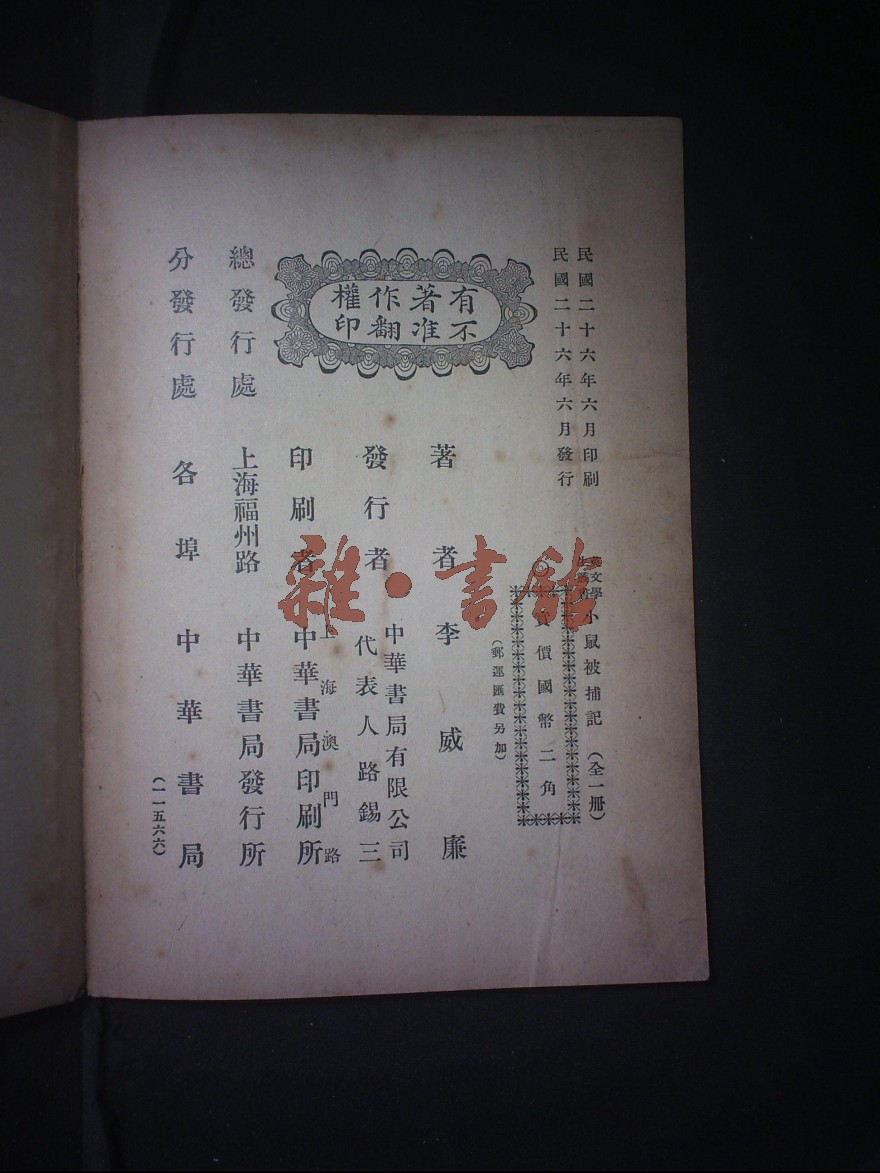 民國二十六年六月印刷
民國二十六年六月發行
英文學
小鼠被捕記(全一冊)
價國幣二角
(郵運匯費另加)
有著作權
不准翻印
著者李威廉
中華書局有限公司
發行者代表人路錫三
上海澳門路
印刷者中華書局印刷所
總發行處上海福州路中華書局發行所
分發行處各埠中華書局
(一一五六六)
雜·書館